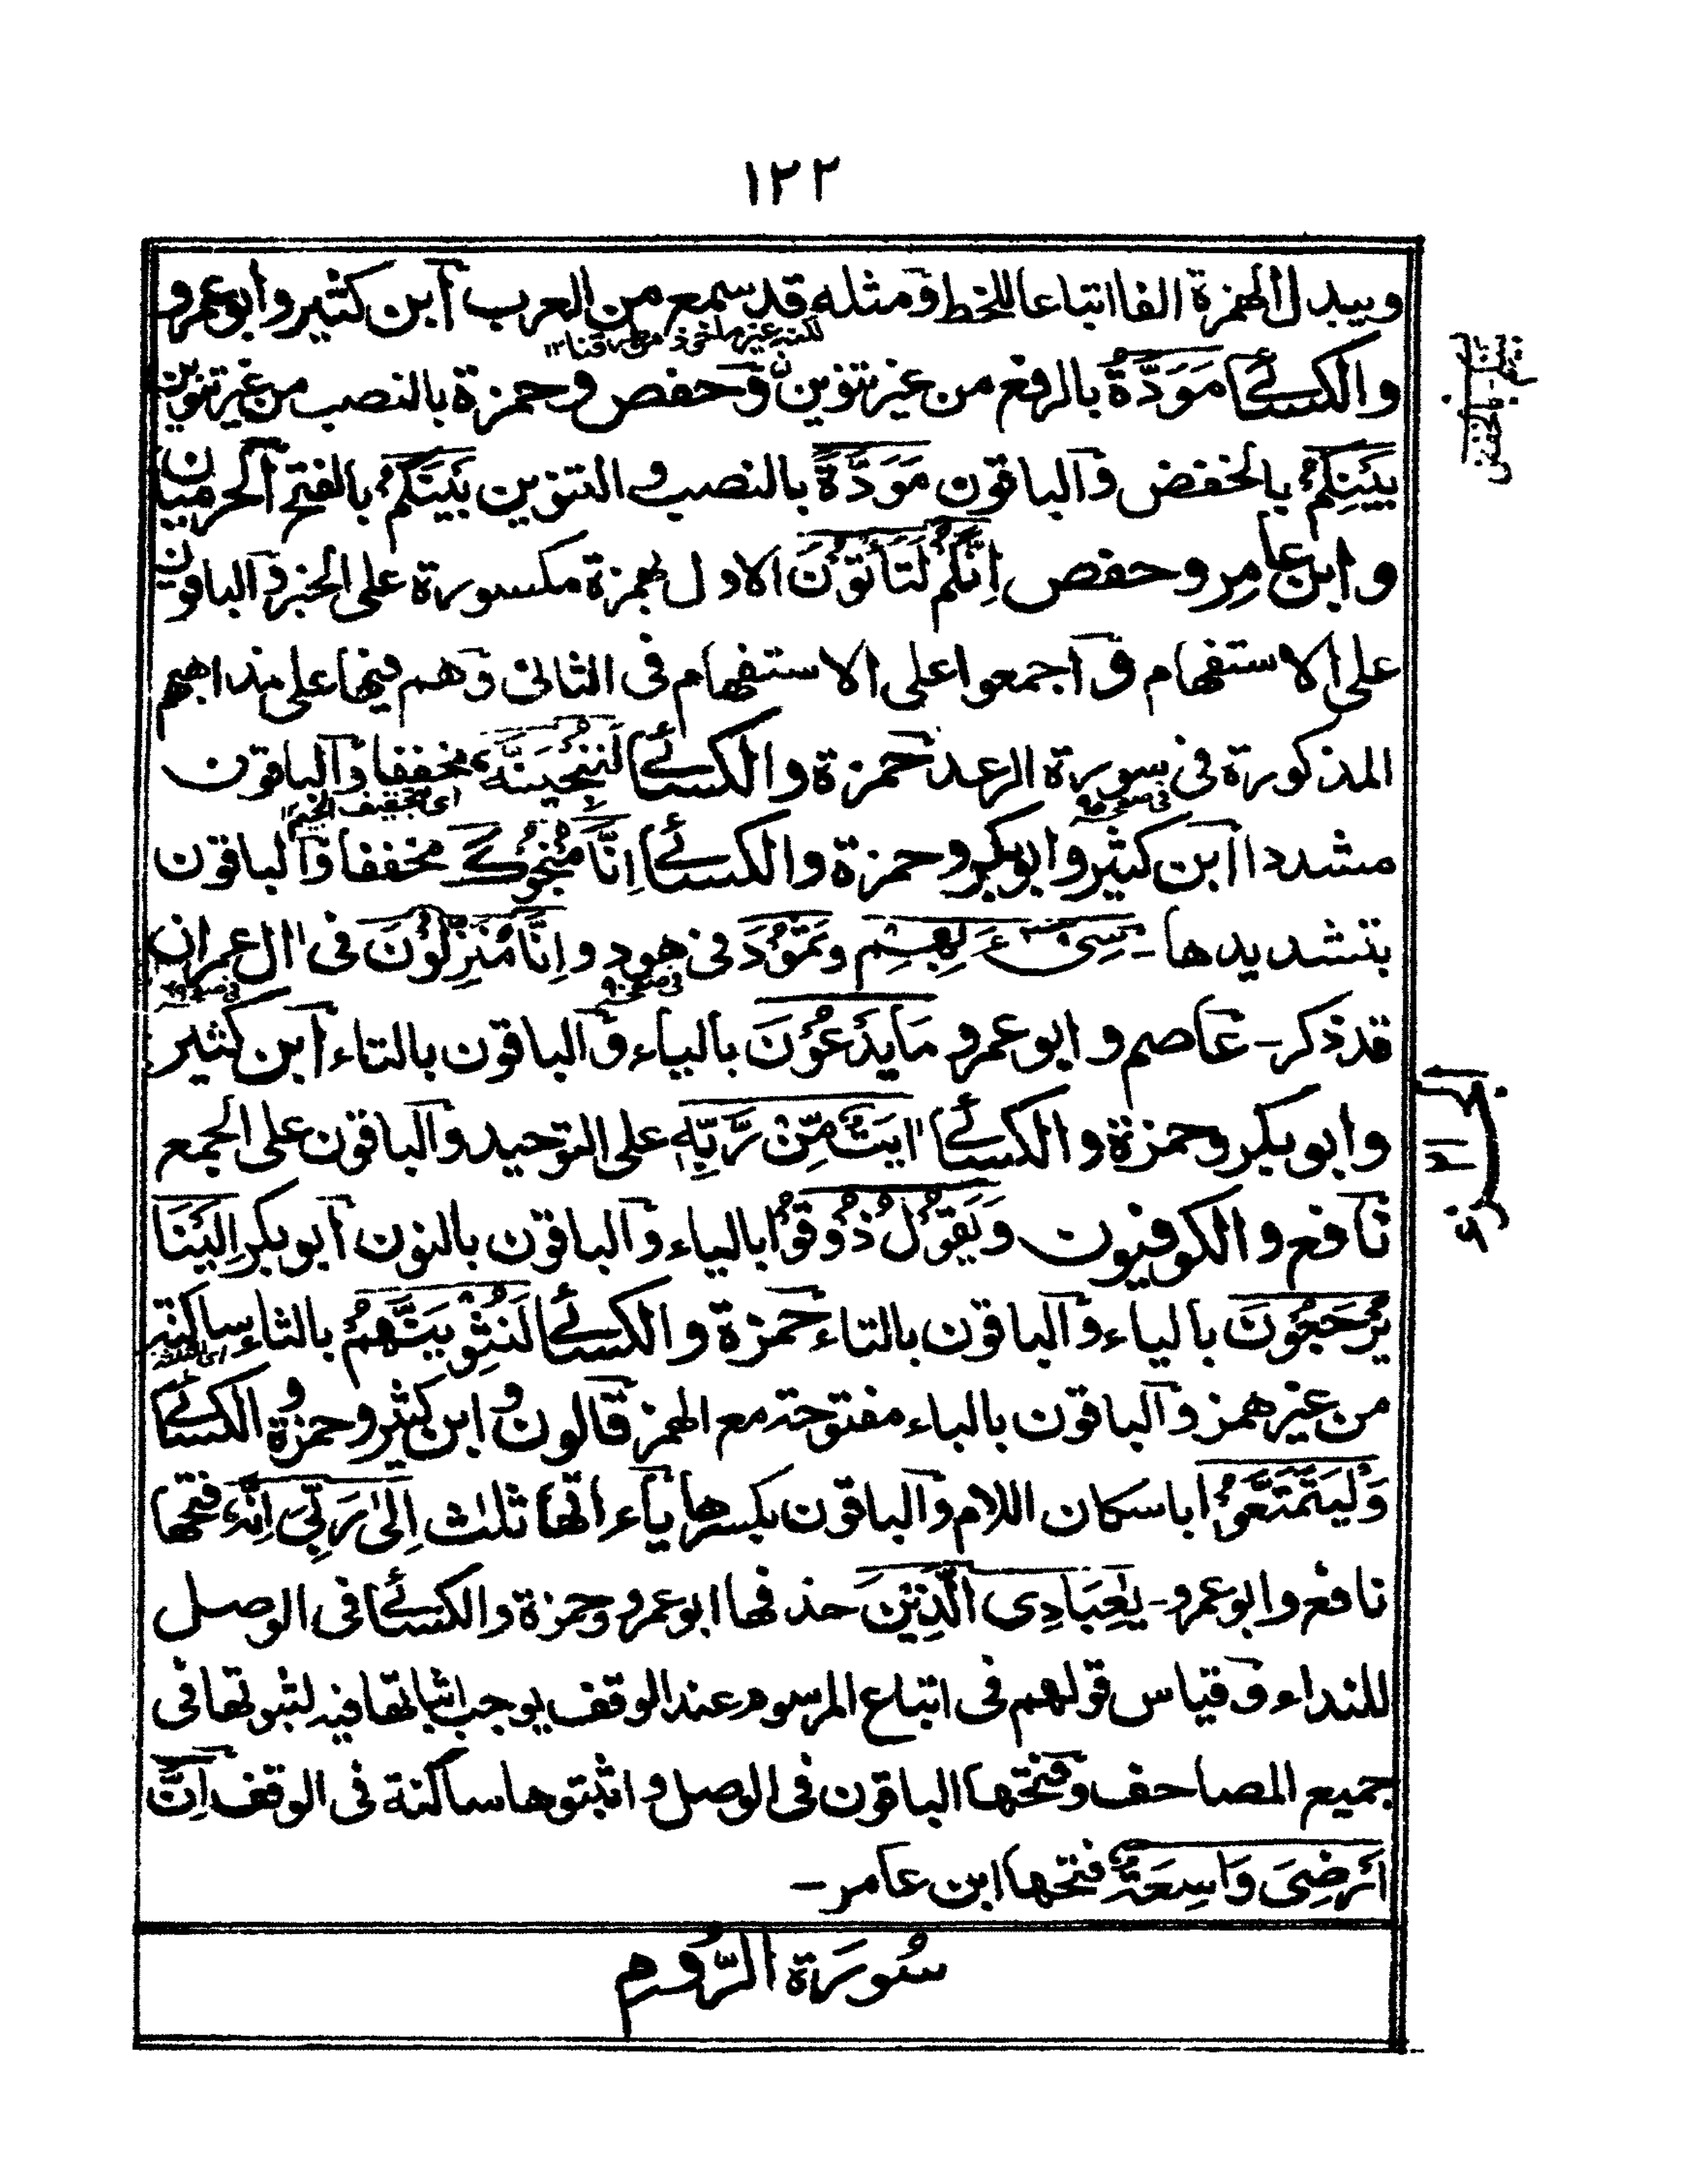 ١٢٢
ويبدل الهمزة الفا اتباعا للخط ومثله قد سمع من العرب ابن كثير وابو عمرو
لكنه غير ماخوذ من طرقنا ١٢
والكسائے مَوَدَّةُ بالرفع من غير تنوين وحفص وحمزة بالنصب من غير تنوين
بَيْنِكُمْ بالخفض والباقون مَوَدَّةً بالنصب والتنوين بَيْنَكُمْ بالفتح الحرميان
وابن عامر وحفص اِنَّكُمْ لَتَأْتُوْنَ الاول بهمزة مكسورة على الخبر والباقون
على الاستفهام واجمعوا على الاستفهام فى الثانى وهم فيهما على مذاهبهم
المذكورة فى سورة الرعد حمزة والكسائے لَنُنْجِيَنَّهٗ مخففا والباقون
مشددا ابن كثير وابو بكر وحمزة والكسائے اِنَّا مُنْجُوْكَ مخففا والباقون
بتشديدها - سِىْٓءَ بِهِمْ وثَمُوْدَ فى هود و اِنَّا مُنْزِلُوْنَ فى اٰل عمران
قد ذكر - عاصم و ابو عمرو مَا يَدْعُوْنَ بالياء والباقون بالتاء ابن كثير
وابو بكر وحمزة والكسائے اٰيَتٌ مِّنْ رَّبِّهٖ على التوحيد والباقون على الجمع
نافع والكوفيون وَيَقُوْلُ ذُوْقُوْا بالياء والباقون بالنون ابو بكر اِلَيْنَا
يُرْجَعُوْنَ بالياء والباقون بالتاء حمزة والكسائے لَنُثْوِيَنَّهُمْ بالثاء ساكنة
من غير همز والباقون بالباء مفتوحة مع الهمز قالون وابن كثير وحمزة والكسائے
وَلْيَتَمَتَّعُوْا باسكان اللام والباقون بكسرها ياء اتها ثلٰث اِلٰى رَبِّىْ اِنَّهٗ فتحها
نافع وابو عمرو - يٰعِبَادِىَ الَّذِيْنَ حذفها ابو عمرو وحمزة والكسائے فى الوصل
للنداء وقياس قولهم فى اتباع المرسوم عند الوقف يوجب اثباتها فيه لثبوتها فى
جميع المصاحف وفتحها الباقون فى الوصل واثبتوها ساكنة فى الوقف اِنَّ
اَرْضِىَ وَاسِعَةٌ فتحها ابن عامر -
سُورَة الرُّومِ